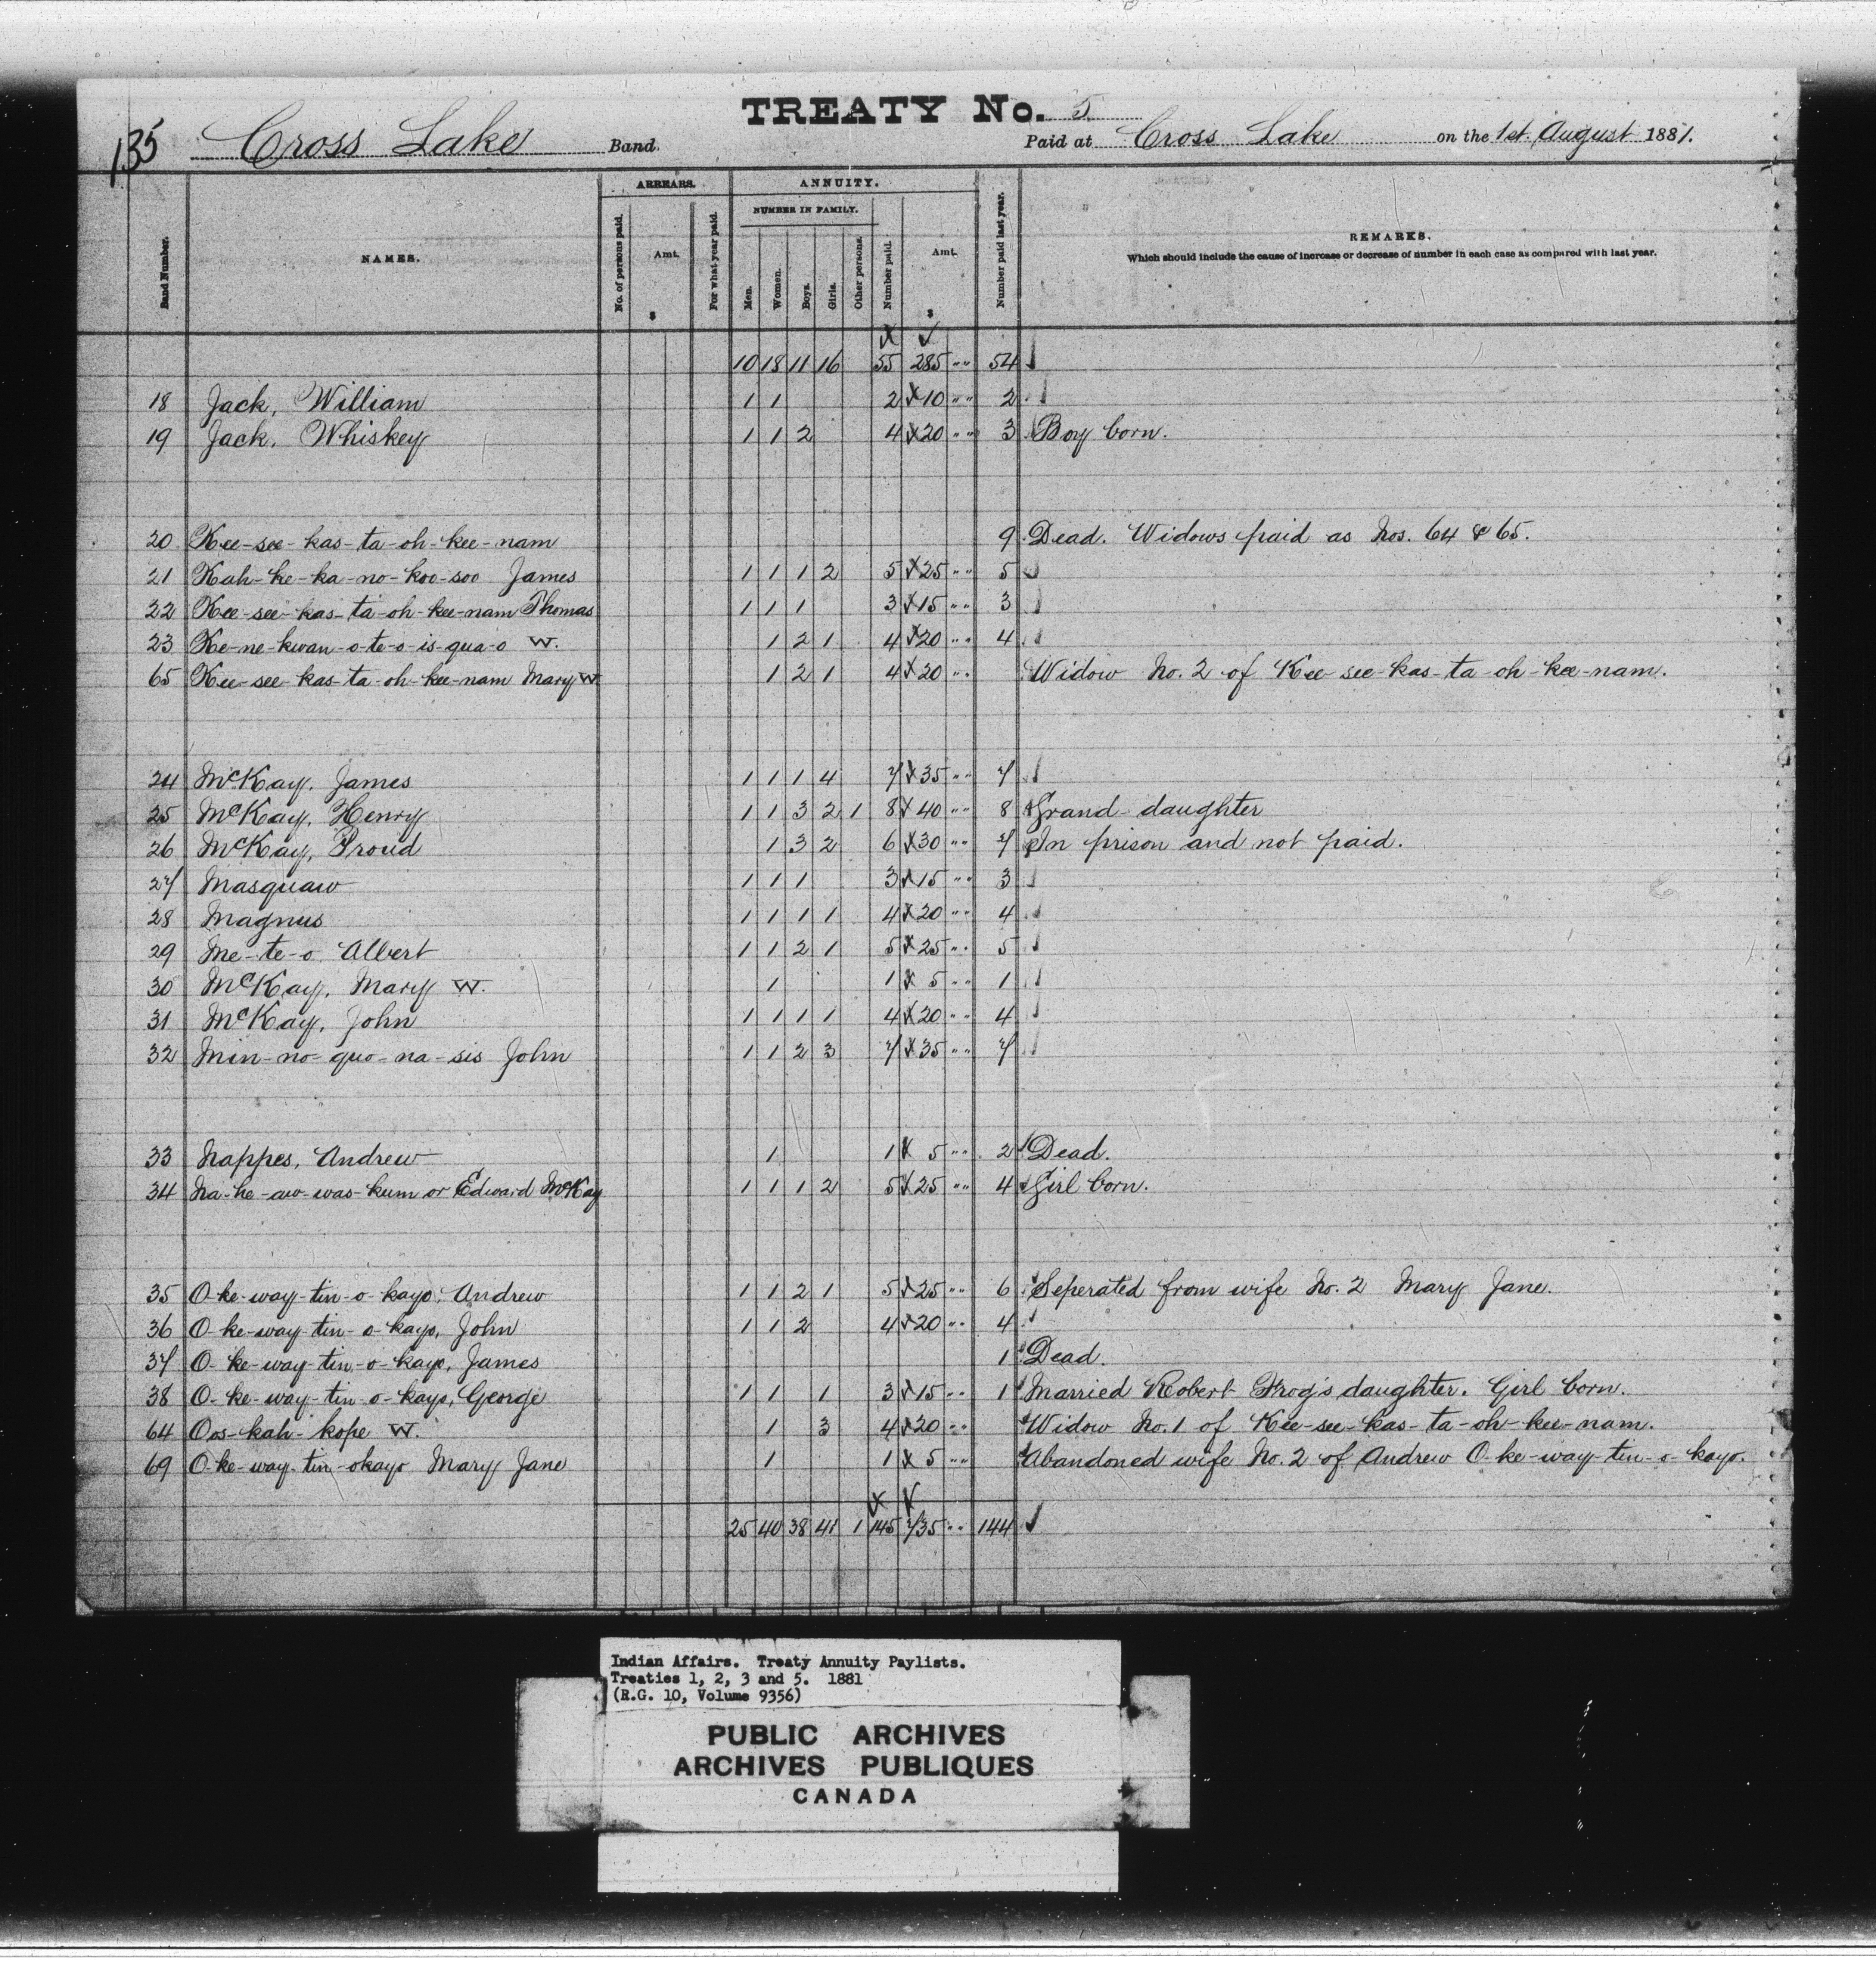 TREATY No. 5
135 Cross Lake Band. Paid at Cross Lake on the 1st. August 1881.
ARREARS. ANNUITY.
NUMBER IN FAMILY.
Band Number. NAMES. No. of persons paid. Amt. $ For what year paid. Men. Women. Boys. Girls. Other persons. Number paid. Amt. $ Number paid last year. REMARKS.
Which should include the cause of increase or decrease of number in each case as compared with last year.
10 18 11 16 55 285 " " 54
18 Jack, William 1 1 2 10 " " 2
19 Jack, Whiskey 1 1 2 4 20 " " 3 Boy born.
20 Kee-see-kas-ta-oh-kee-nam 9 Dead. Widows paid as Nos. 64 & 65.
21 Kah-ke-ka-no-koo-soo James 1 1 1 2 5 25 " " 5
22 Kee-see-kas-ta-oh-kee-nam Thomas 1 1 1 3 15 " " 3
23 Ke-ne-kwan-o-te-o-is-qua-o W. 1 2 1 4 20 " " 4
65 Kee-see-kas-ta-oh-kee-nam Mary W 1 2 1 4 20 " " Widow No. 2 of Kee-see-kas-ta-oh-kee-nam.
24 McKay, James 1 1 1 4 7 35 " " 7
25 McKay, Henry 1 1 3 2 1 8 40 " " 8 Grand-daughter
26 McKay, Proud 1 3 2 6 30 " " 7 In prison and not paid.
27 Masquaw 1 1 1 3 15 " " 3
28 Magnus 1 1 1 1 4 20 " " 4
29 Me-te-o, Albert 1 1 2 1 5 25 " " 5
30 McKay, Mary W. 1 1 5 " " 1
31 McKay, John 1 1 1 1 4 20 " " 4
32 Min-no-quo-na-sis John 1 1 2 3 7 35 " " 7
33 Nappes, Andrew 1 1 5 " " 2 Dead.
34 Na-he-aw-was-kum or Edward McKay 1 1 1 2 5 25 " " 4 Girl born.
35 O-ke-way-tin-o-kayo, Andrew 1 1 2 1 5 25 " " 6 Seperated from wife No. 2 Mary Jane.
36 O-ke-way-tin-o-kayo, John 1 1 2 4 20 " " 4
37 O-ke-way-tin-o-kayo, James 1 Dead.
38 O-ke-way-tin-o-kayo, George 1 1 1 3 15 " " 1 Married Robert Frog's daughter. Girl born.
64 Oos-kah-kope W. 1 3 4 20 " " Widow No. 1 of Kee-see-kas-ta-oh-kee-nam.
69 O-ke-way-tin-okayo Mary Jane 1 1 5 " " Abandoned wife No. 2 of Andrew O-ke-way-tin-o-kayo.
25 40 38 41 1 145 735 " " 144
Indian Affairs. Treaty Annuity Paylists.
Treaties 1, 2, 3 and 5. 1881
(R.G. 10, Volume 9356)
PUBLIC ARCHIVES
ARCHIVES PUBLIQUES
CANADA